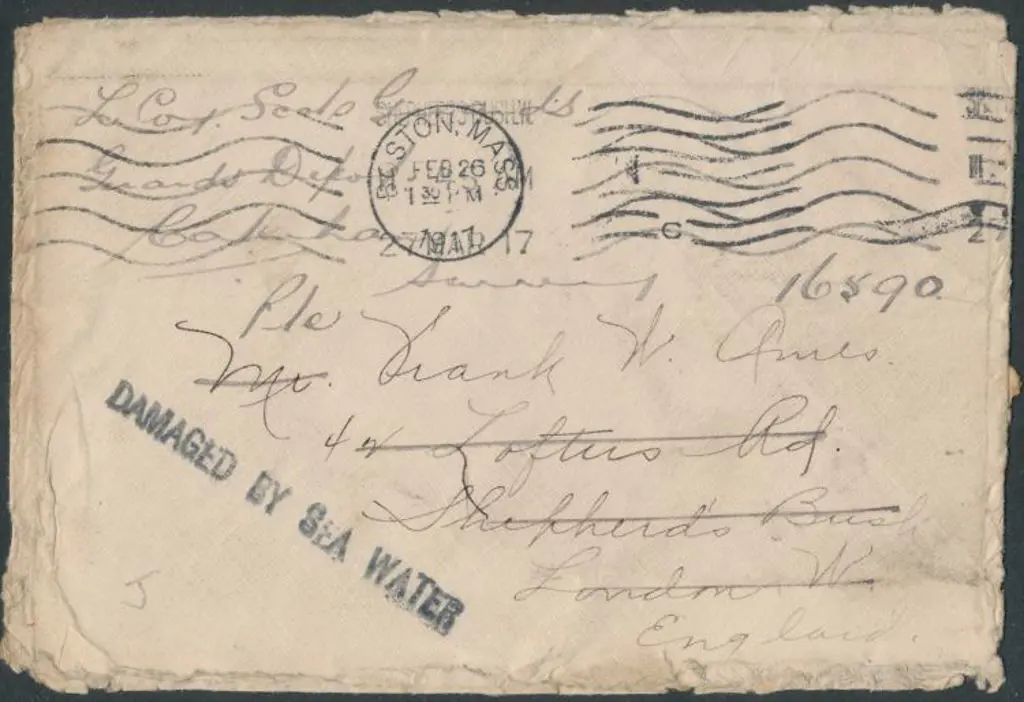 L. Coy. Scots Guards
Guards Depot
Caterham
Surrey
BOSTON, MASS.
FEB 26
1 30 PM
1917
27 MAR 17
C
16890
Pte
Mr. Frank W. Ames.
42 Loftus Rd.
Shepherd's Bush
London W.
England.
DAMAGED BY SEA WATER